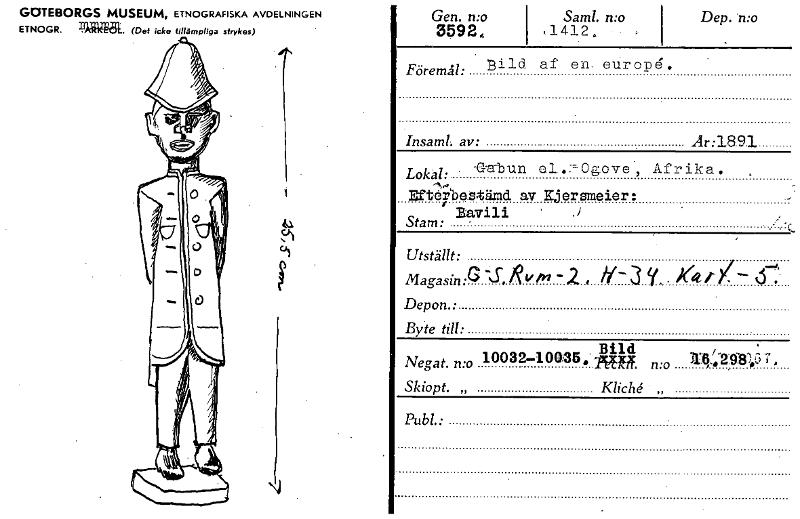 GÖTEBORGS MUSEUM, ETNOGRAFISKA AVDELNINGEN
ETNOGR. ARKEOL. (Det icke tillämpliga strykes)
25,5 cm
Gen. n:o Saml. n:o Dep. n:o
3592. 1412.
Föremål: Bild af en europé.
Insaml. av: År:1891
Lokal: Gabun el. Ogove, Afrika.
Efterbestämd av Kjersmeier:
Stam: Bavili
Utställt:
Magasin: G-S. Rum-2. H-34 Kart.-5.
Depon.:
Byte till:
Bild
Negat. n:o 10032-10035. Teckn. n:o 16.298.
Skiopt. „ Kliché „
Publ.: